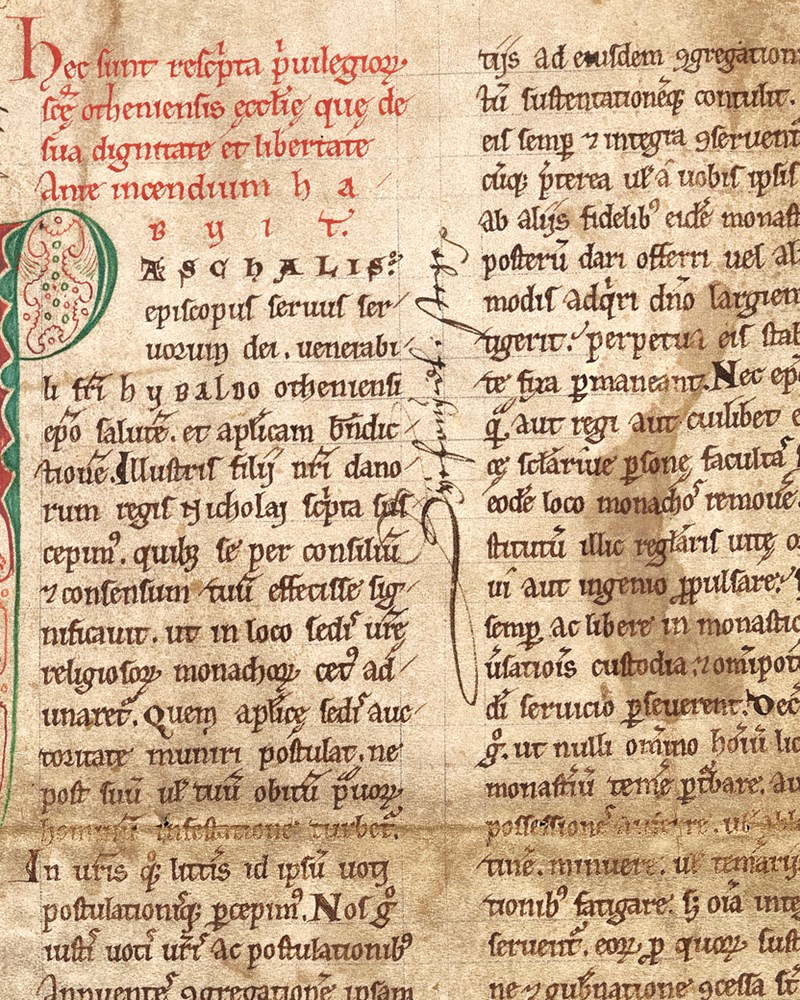 Hec sunt rescͥpta pͥuilegioꝝ
scę otheniensis ęcclię quę de
sua dignitate et libertate
Ante incendium h a
B y i T.
ASChALIS.
episcopus seruus ser
uorum dei. uenerabi
li fr̄i hyBALDO otheniensi
ep̄o salutē. et apl̄icam bn̄dic
tionē. Illustris filij nr̄i dano
rum regis Nicholaj scͥpta sus
cepim᷒. quibꝫ se per consiliū
⁊ consensum tuū effecisse sig
nificauit. ut in loco sedis ur̄ę
religiosoꝝ monachoꝝ cet᷒ ad
unaret᷑. Quem apl̄icę sedis auc
toritate muniri postulat. ne
post suū ul̄ tuū obitū pͣuoꝝ
hominū infestatione turbet᷑.
In ur̄is qͦꝫ litt̄is id ipsū uoti
postulationiqꝫ ꝑcepim᷒. Nos gͦ
iustis uotis ur̄is ac postulationibꝰ
Annuentes ꝯgregationē ipsam
tijs ad eiusdem ꝯgregation
tū sustentationēqꝫ contulit.
eis semꝑ ⁊ integra ꝯseruent
cūqꝫ p̄terea ul̄ a uobis ipsis
ab alijs fidelibꝰ eidē monast
posterū dari offerri uel al
modis adqͥri dn̄o largien
tigerit. perpetua eis stab
te fixa ꝑmaneant. Nec ep̄o
qͣ, aut regi aut cuilibet e
cę sclārīue ꝑsonę facultas
eodē loco monachos remoue
stitutū illic regl̄aris uitę o
ui aut ingenio ꝓpulsare.
semꝑ ac libere in monastic
ūsatiois custodia. ⁊ om̄ipot
di seruicio ꝑseuerent. Dec
gͦ. ut nulli om̄ino hoīū lic
monast̄iū temē ꝑt᷑bare. au
possessiones auferre. ul̄ abla
tinē. minuere. ul̄ temārijs
tionibꝰ fatigare. sꝫ oīa inte
seruent᷑. eoꝝ ꝓ quoꝝ sust
ne ⁊ gub̄natione ꝯcessa s̄t